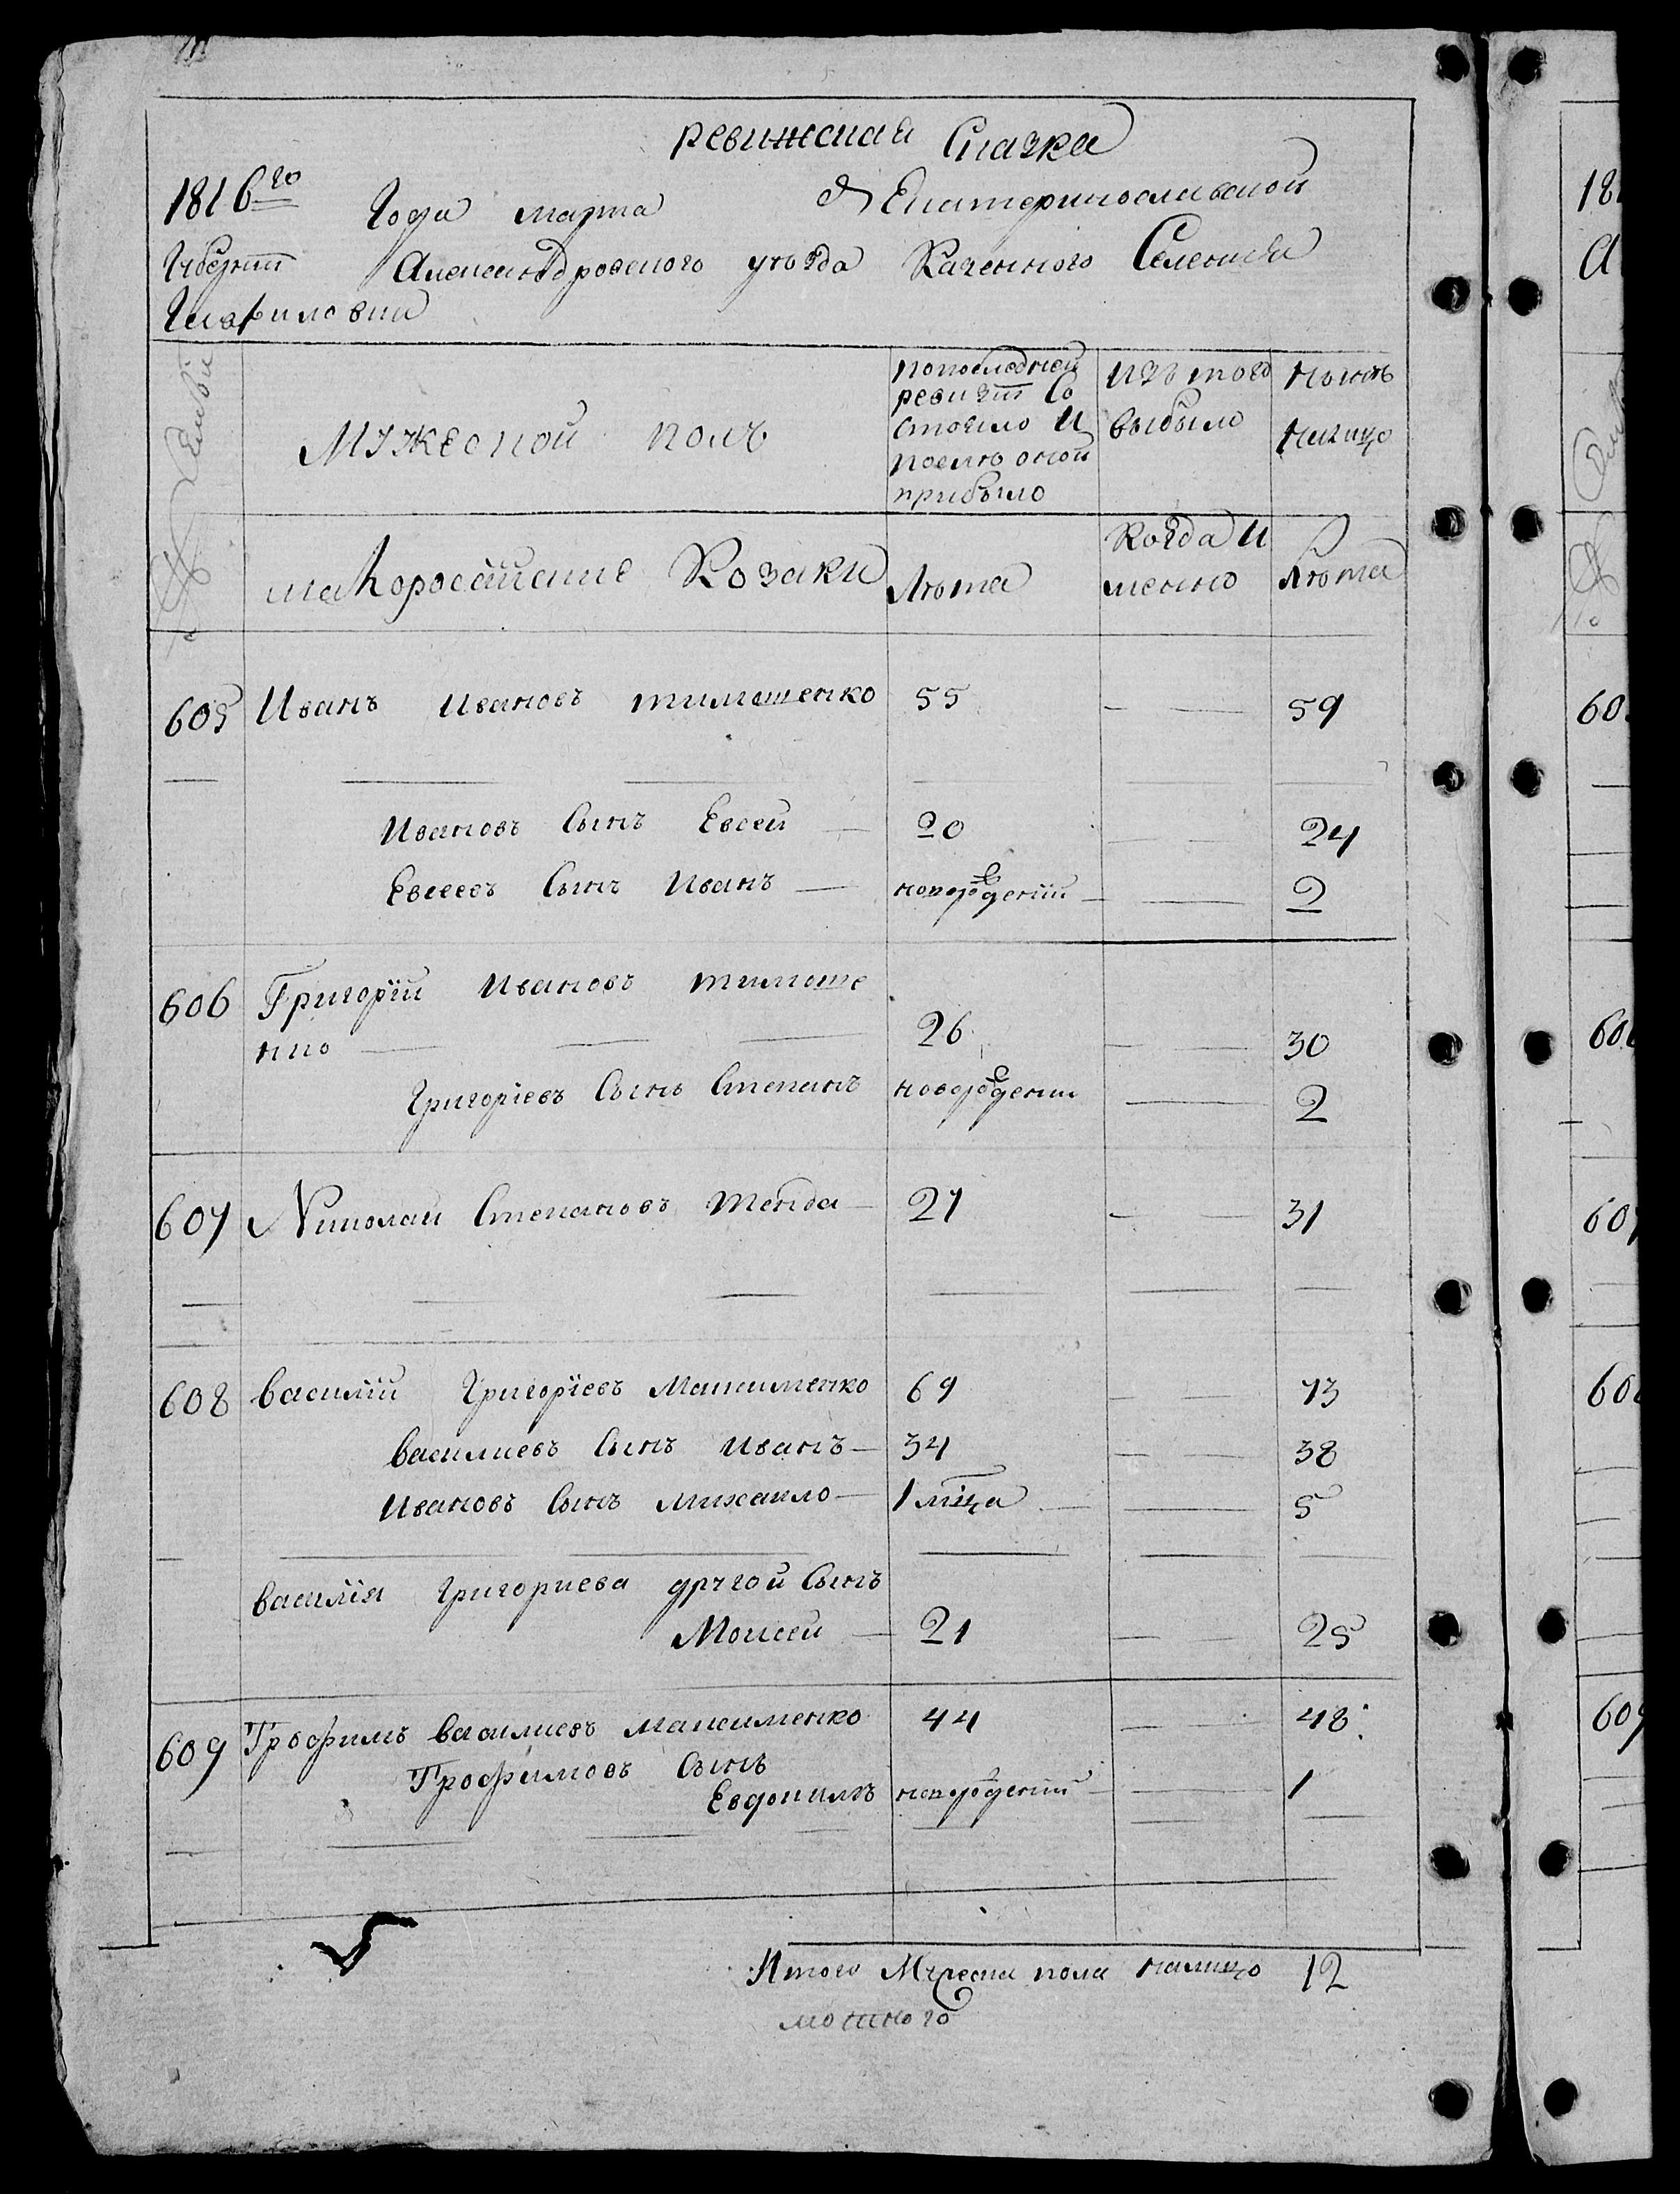 ревижская Сказка
1816го Года марта Екатеринославской
Губерніи Александровского уѣзда Казенного Селенія
Гнафиловки
Семьи
Мужеской полъ
попоследней
ревизіи Со
стояло И
послѣ оной
прибыло
изъ того
выбыло
нынѣ
налицо
малоросѣйскіе Козаки
Лѣта
Когда И
менно
Лѣта
605 Иванъ Ивановъ тимошенко 55 59
Ивановъ Сынъ Евсей 20 24
Евсеевъ Сынъ Иванъ новорожденій 2
606 Григорій Ивановъ тимоше
нко 26 30
Григоріевъ Сынъ Степанъ новорожденій 2
607 Николай Степановъ тенда 27 31
608 Василій Григоріевъ Максименко 69 73
Василиевъ Сынъ Иванъ 34 38
Ивановъ Сынъ михаило 1 мѣца 5
Василія Григориева другой Сынъ
Моисей 21 25
609 Трофимъ Василиевъ максименко 44 48
Трофимовъ Сынъ
Евдокимъ новорожденій 1
Итого Мужеска пола налицо 12